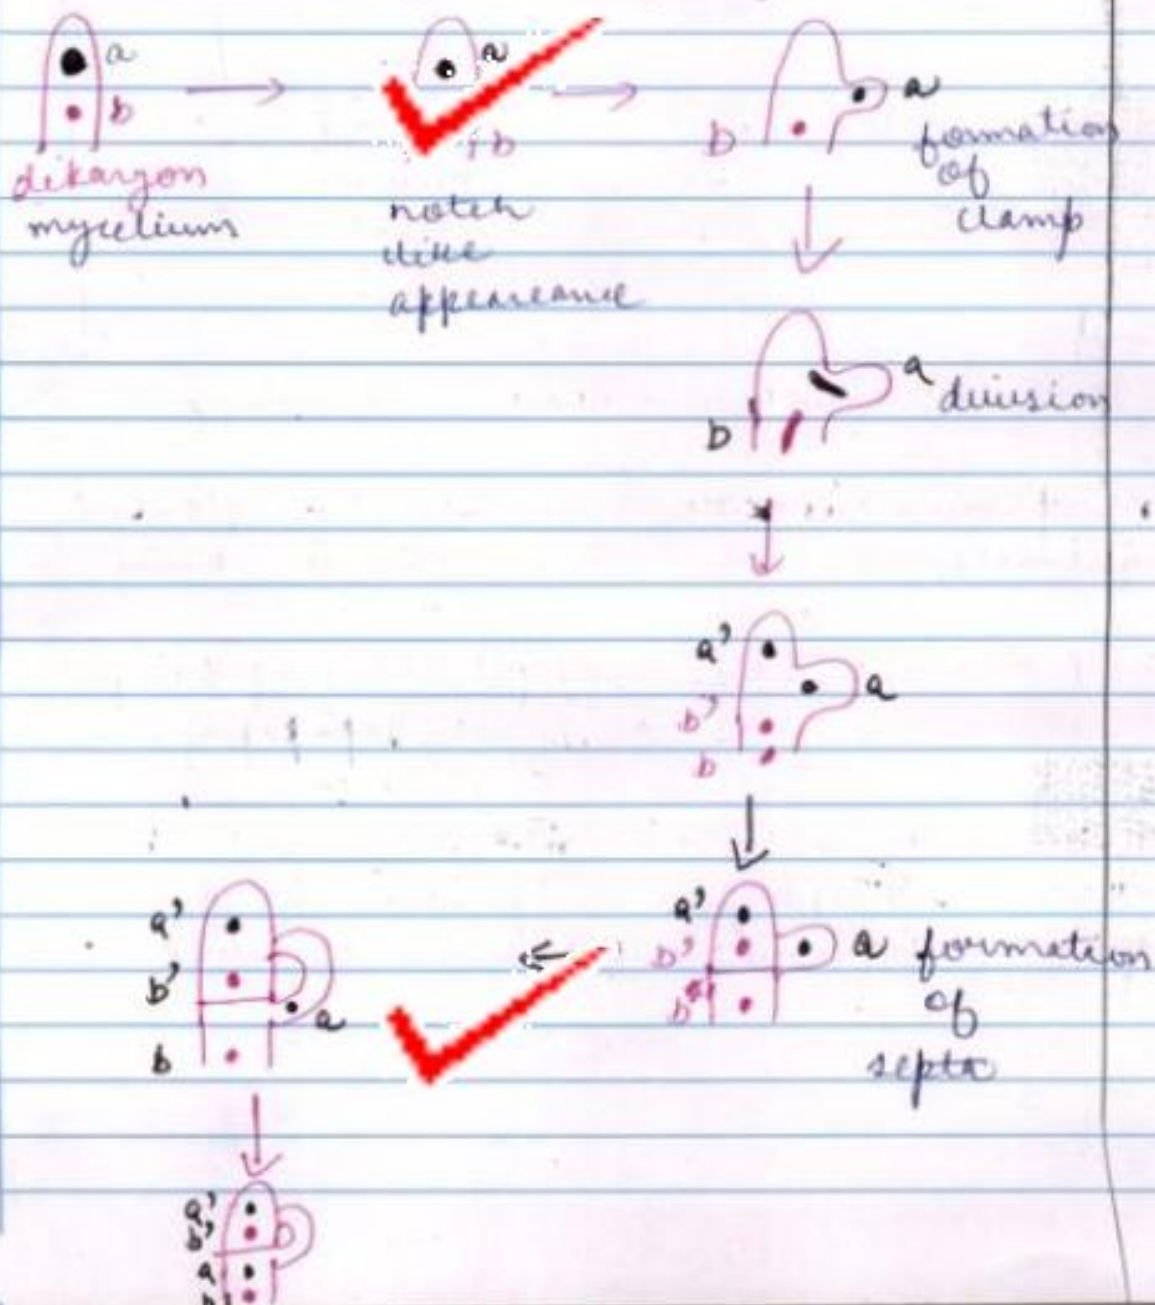 a
b
dikaryon
mycelium
a
b
notch
like
appeareance
a
b
formation
of
clamp
a
division
b
a'
a
b'
b
a'
b'
a
b
formation
of
septa
a'
b'
a
b
a'
b'
a
b